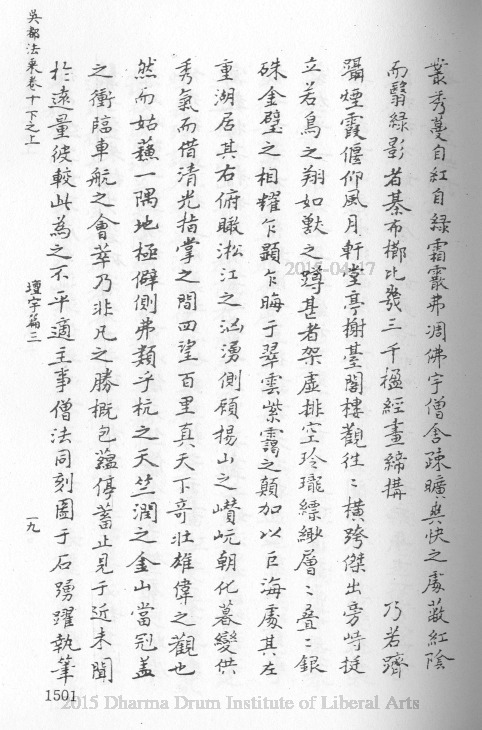 叢秀蔓自紅自綠霜霰弗凋佛宇僧舍疎曠爽快之處蔽紅陰
而翳綠影者綦布櫛比幾三千楹經畫締搆　　乃若躋
躡煙霞偃仰風月軒堂亭榭臺閣樓觀往〻橫跨傑出旁峙挺
立若鳥之翔如獸之蹲甚者架虛排空玲瓏縹緲層〻疊〻銀
硃金璧之相耀乍顯乍晦于翠雲紫靄之顛加以巨海處其左
重湖居其右俯瞰淞江之洶湧側顧揚山之巑岏朝化暮變供
秀氣而借清光指掌之間四望百里真天下奇壯雄偉之觀也
然而姑蘇一隅地極僻側弗類乎杭之天竺潤之金山當冠蓋
之衝臨車航之會萃乃非凡之勝概包蘊停蓄止見于近未聞
於遠量彼較此為之不平適主事僧法同刻圖于石踴躍執筆
吳都法乘卷十下之上
壇宇篇三
一九
1501
2015-04-17
2015 Dharma Drum Institute of Liberal Arts